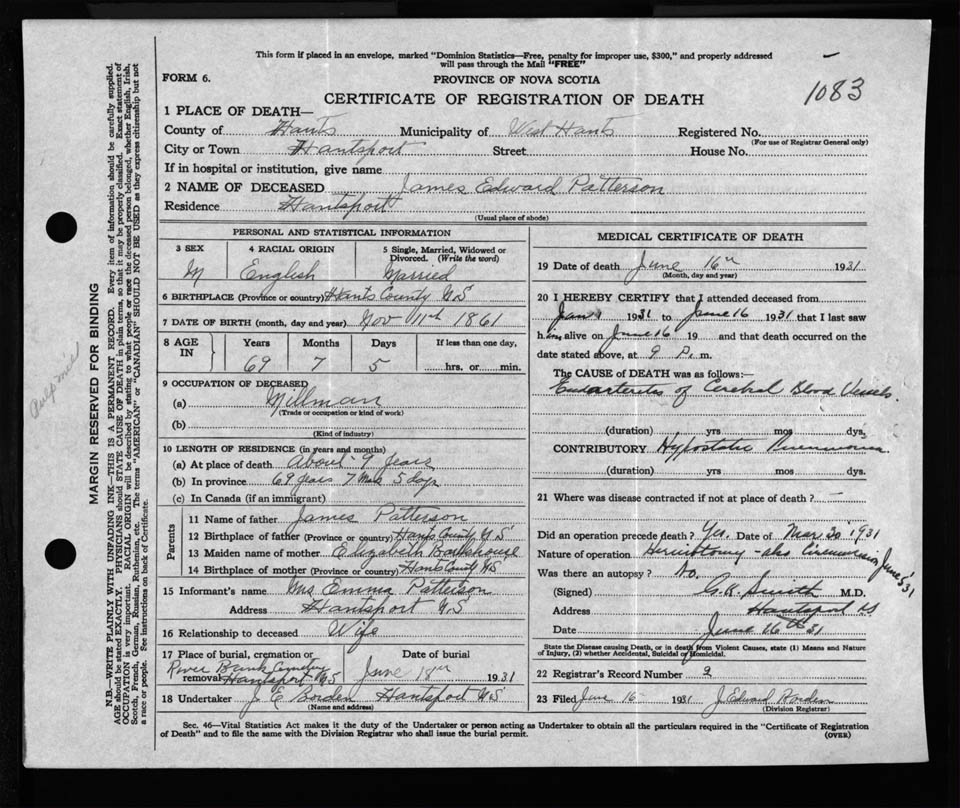 This form if placed in an envelope, marked "Dominion Statistics—Free, penalty for improper use, $300," and properly addressed
will pass through the Mail "FREE"
FORM 6.
PROVINCE OF NOVA SCOTIA
CERTIFICATE OF REGISTRATION OF DEATH
1083
1 PLACE OF DEATH—
County of Hants Municipality of West Hants Registered No.
(For use of Registrar General only)
City or Town Hantsport Street House No.
If in hospital or institution, give name
2 NAME OF DECEASED James Edward Patterson
Residence Hantsport
(Usual place of abode)
PERSONAL AND STATISTICAL INFORMATION
3 SEX 4 RACIAL ORIGIN 5 Single, Married, Widowed or
Divorced. (Write the word)
M English Married
6 BIRTHPLACE (Province or country) Hants County N S
7 DATE OF BIRTH (month, day and year) Nov 11th 1861
8 AGE IN Years Months Days If less than one day,
69 7 5 hrs. or min.
9 OCCUPATION OF DECEASED
(a) Millman
(Trade or occupation or kind of work)
(b)
(Kind of industry)
10 LENGTH OF RESIDENCE (in years and months)
(a) At place of death About 9 Years
(b) In province 69 Years 7 Mos 5 days
(c) In Canada (if an immigrant)
Parents
11 Name of father James Patterson
12 Birthplace of father (Province or country) Hants County N S
13 Maiden name of mother Elizabeth
14 Birthplace of mother (Province or country) Hants County N S
15 Informant's name Mrs Emma Patterson
Address Hantsport N S
16 Relationship to deceased Wife
17 Place of burial, cremation or Date of burial
River Bank Cemetery
removal Hantsport N S June 18th 1931
18 Undertaker J E Borden Hantsport N S
(Name and address)
MEDICAL CERTIFICATE OF DEATH
19 Date of death June 16th 1931
(Month, day and year)
20 I HEREBY CERTIFY that I attended deceased from
Jan 1 1931 to June 16 1931 that I last saw
him alive on June 16 19 and that death occurred on the
date stated above, at 9 P. m.
The CAUSE of DEATH was as follows:—
Endarteritis of Cerebral Blood Vessels.
(duration) yrs mos dys.
CONTRIBUTORY Hypostatic Pneumonia
(duration) yrs. mos. dys.
21 Where was disease contracted if not at place of death? —
Did an operation precede death? Yes. Date of Mar 20 1931
Nature of operation Herniotomy - also Circumcision June 5 '31
Was there an autopsy? No.
(Signed) G.K. Smith M.D.
Address Hantsport N S
Date June 16th 31
State the Disease causing Death, or in death from Violent Causes, state (1) Means and Nature
of Injury, (2) whether Accidental, Suicidal or Homicidal.
22 Registrar's Record Number 9
23 Filed June 16 1931 J Edward Borden
(Division Registrar)
Sec. 46—Vital Statistics Act makes it the duty of the Undertaker or person acting as Undertaker to obtain all the particulars required in the "Certificate of Registration
of Death" and to file the same with the Division Registrar who shall issue the burial permit.
(OVER)
MARGIN RESERVED FOR BINDING
N.B.—WRITE PLAINLY WITH UNFADING INK—THIS IS A PERMANENT RECORD. Every item of information should be carefully supplied.
AGE should be stated EXACTLY. PHYSICIANS should STATE CAUSE OF DEATH in plain terms, so that it may be properly classified. Exact statement of
OCCUPATION is very important. RACIAL ORIGIN will be described by stating what people or race the deceased person belonged, whether English, Irish,
Scotch, French, German, Russian, Ruthenian, etc. The terms "AMERICAN" or "CANADIAN" SHOULD NOT BE USED as they express citizenship but not
a race or people. See instructions on back of Certificate.